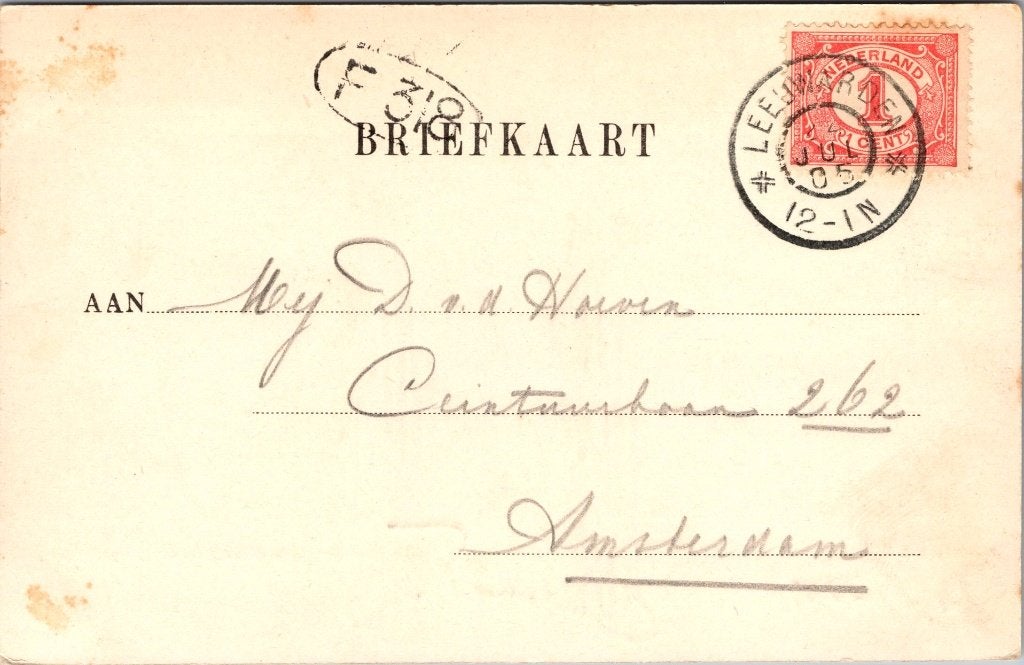 F 318
BRIEFKAART
NEDERLAND
1
CENT
LEEUWARDEN
4
JUL
05
12-1N
AAN Mej D. v.d. Hoeven
Ceintuurbaan 262
Amsterdam